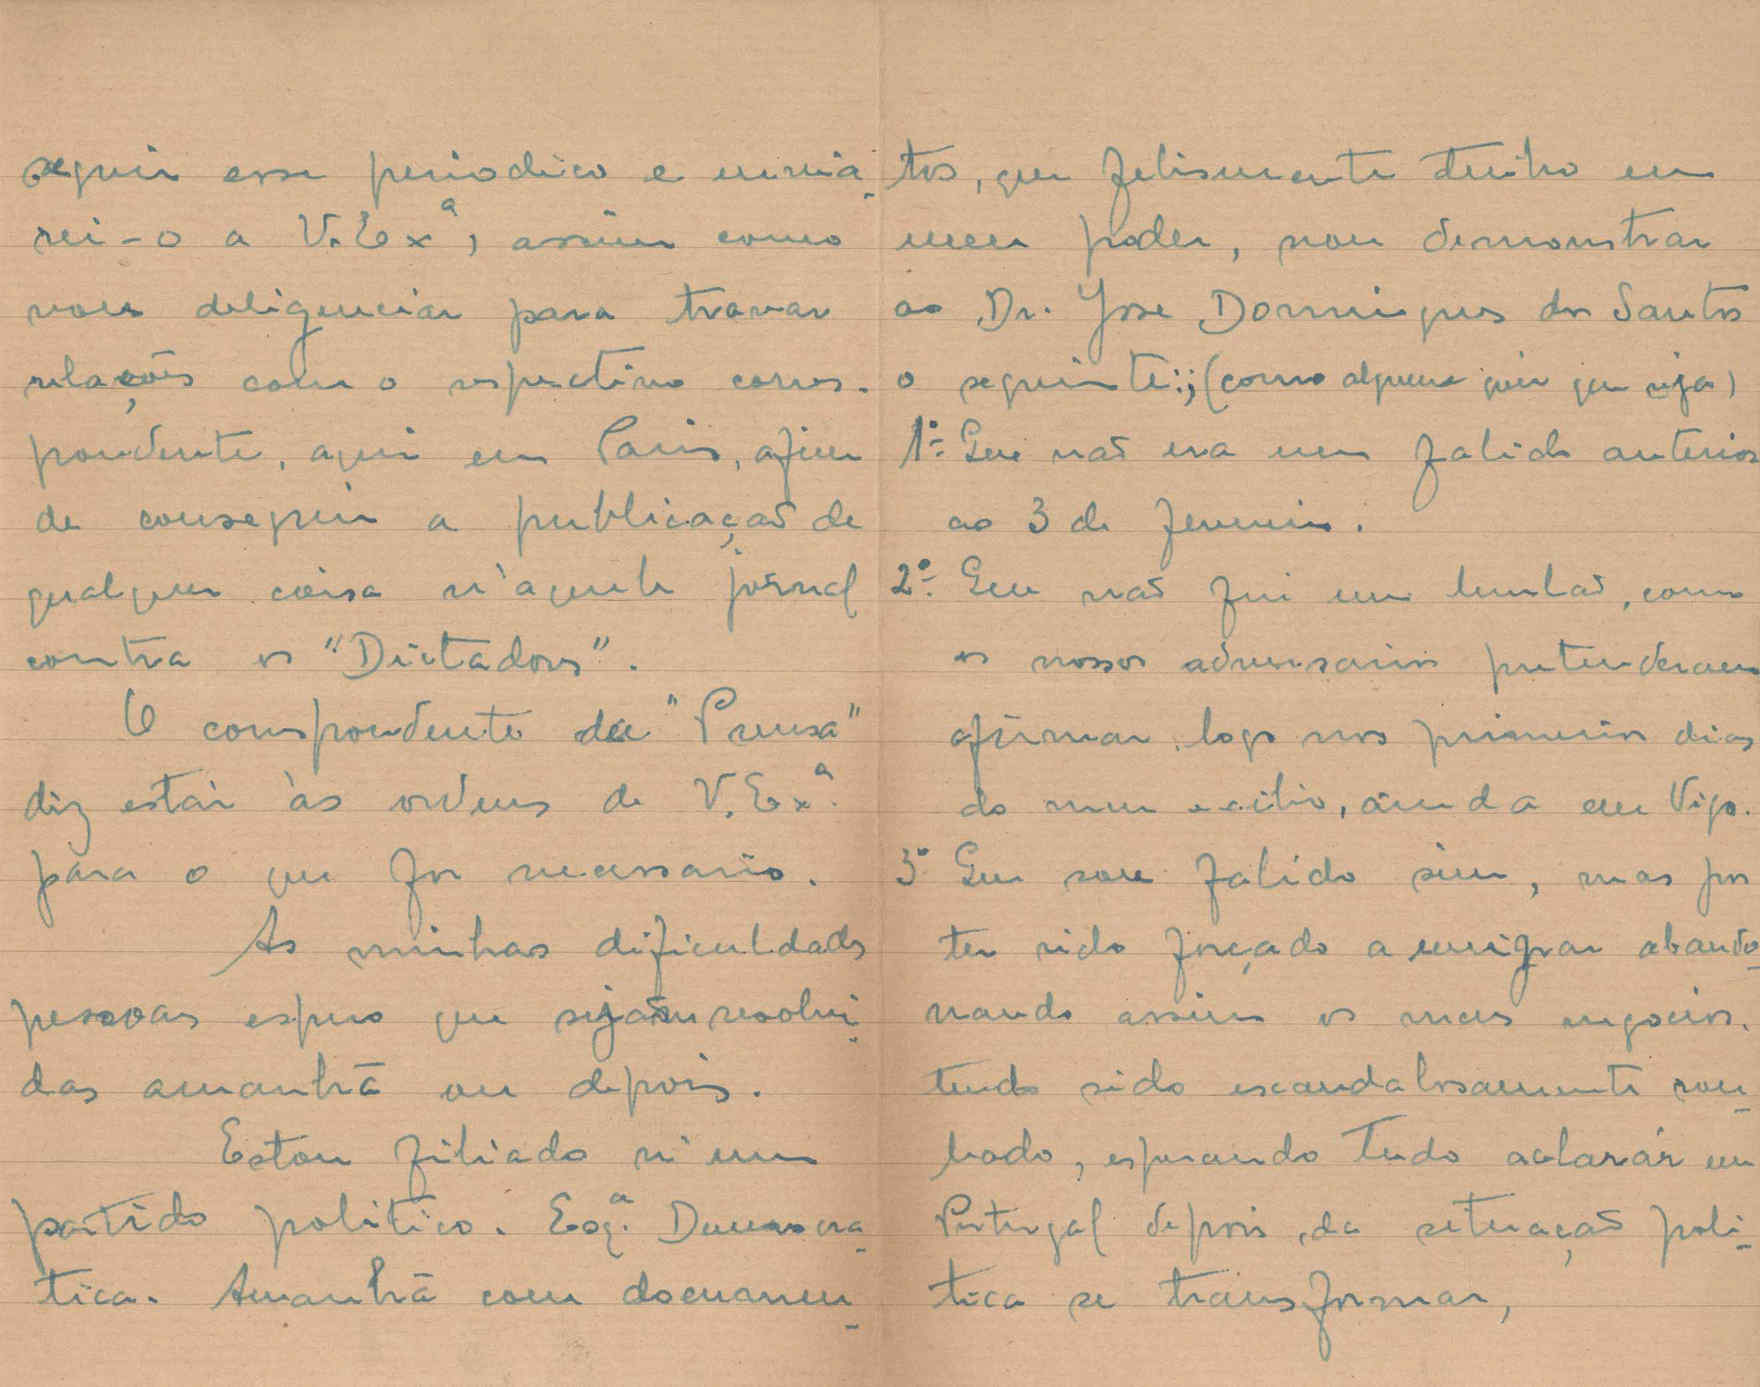 seguir esse periodico e envia-
rei-o a V. Exª, assim como
vou deligenciar para travar
relações com o respectivo corres-
pondente, aqui em Paris, afim
de conseguir a publicação de
qualquer coisa n'aquele jornal
contra os "Dictadores".
O correspondente da "Prensa"
diz estar às ordens de V. Exª.
para o que for necessario.
As minhas dificuldades
pessoais espero que sejam resolvi-
das amanhã ou depois.
Estou filiado n'um
partido politico. Esqª. Democra-
tica. Amanhã com documen-
tos, que felismente tenho em
meu poder, vou demonstrar
ao Dr. Jose Domingues dos Santos
o seguinte:; (como alguem quer que seja)
1º- Que não era um falido anterior
ao 3 de Fevereiro.
2º- Que não fui um burlão, como
os nossos adversarios pretenderam
afirmar logo nos primeiros dias
do meu exilio, ainda em Vigo.
3º Que sou falido sim, mas por
ter sido forçado a emigrar abando-
nando assim os meus negocios.
tendo sido escandalosamente rou-
bado, esperando tudo aclarár em
Portugal depois, da situação poli-
tica se transformar,